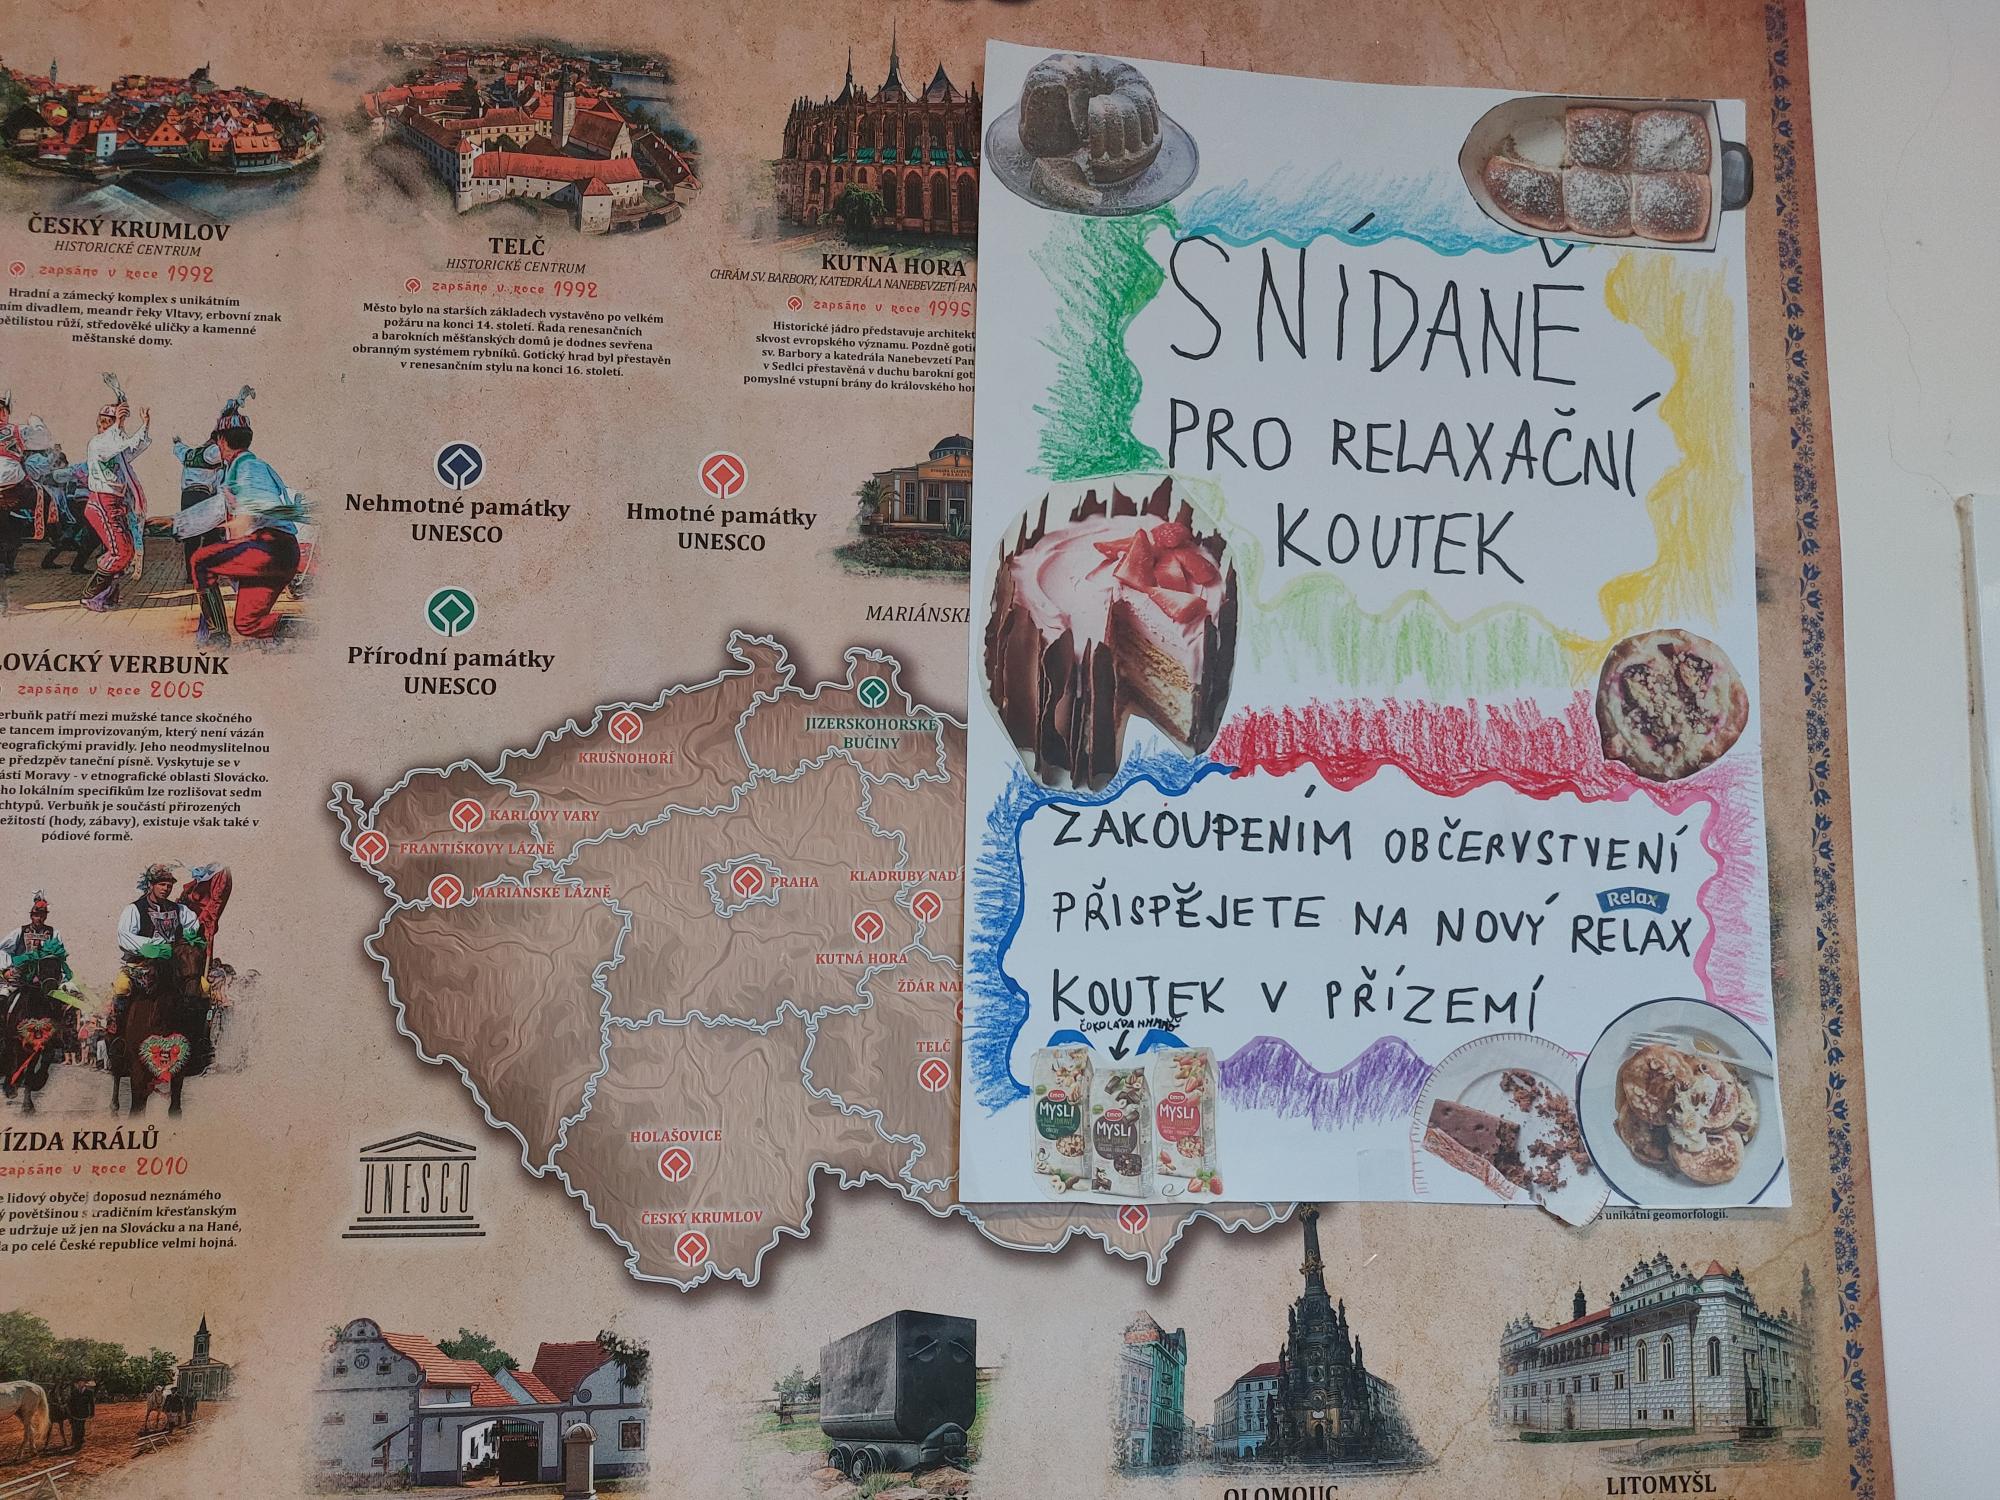 ČESKÝ KRUMLOV
HISTORICKÉ CENTRUM
zapsáno v roce 1992
Hradní a zámecký komplex s unikátním
ním divadlem, meandr řeky Vltavy, erbovní znak
pětilistou růží, středověké uličky a kamenné
měšťanské domy.
TELČ
HISTORICKÉ CENTRUM
zapsáno v roce 1992
Město bylo na starších základech vystavěno po velkém
požáru na konci 14. století. Řada renesančních
a barokních měšťanských domů je dodnes sevřena
obranným systémem rybníků. Gotický hrad byl přestavěn
v renesančním stylu na konci 16. století.
KUTNÁ HORA
CHRÁM SV. BARBORY, KATEDRÁLA NANEBEVZETÍ PAN
zapsáno v roce 1995
Historické jádro představuje architekt
skvost evropského významu. Pozdně goti
sv. Barbory a katedrála Nanebevzetí Pan
v Sedlci přestavěná v duchu barokní got
pomyslné vstupní brány do královského hor
Nehmotné památky
UNESCO
Hmotné památky
UNESCO
Přírodní památky
UNESCO
MARIÁNSKÉ
LOVÁCKÝ VERBUŇK
zapsáno v roce 2005
erbuňk patří mezi mužské tance skočného
e tancem improvizovaným, který není vázán
reografickými pravidly. Jeho neodmyslitelnou
e předzpěv taneční písně. Vyskytuje se v
ásti Moravy - v etnografické oblasti Slovácko.
ho lokálním specifikům lze rozlišovat sedm
chtypů. Verbuňk je součástí přirozených
ežitostí (hody, zábavy), existuje však také v
pódiové formě.
JÍZDA KRÁLŮ
zapsáno v roce 2010
e lidový obyčej doposud neznámého
ý povětšinou s tradičním křesťanským
e udržuje už jen na Slovácku a na Hané,
la po celé České republice velmi hojná.
UNESCO
KRUŠNOHOŘÍ
JIZERSKOHORSKÉ
BUČINY
KARLOVY VARY
FRANTIŠKOVY LÁZNĚ
MARIÁNSKÉ LÁZNĚ
PRAHA
KLADRUBY NAD
KUTNÁ HORA
ŽĎÁR NAD
TELČ
HOLAŠOVICE
ČESKÝ KRUMLOV
SNÍDANĚ
PRO RELAXAČNÍ
KOUTEK
ZAKOUPENÍM OBČERVSTVENÍ
PŘISPĚJETE NA NOVÝ RELAX
Relax
KOUTEK V PŘÍZEMÍ
ČOKOLÁDA
Emco
MYSLI
Emco
MYSLI
Emco
MYSLI
s unikátní geomorfologií.
OLOMOUC
LITOMYŠL